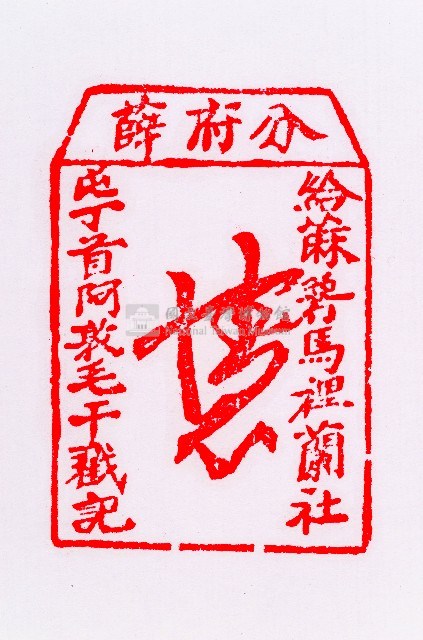 分府薛
給蔴薯馬裡蘭社
慎
屯丁首阿敦毛干戳記
國立臺灣博物館
National Taiwan Museum